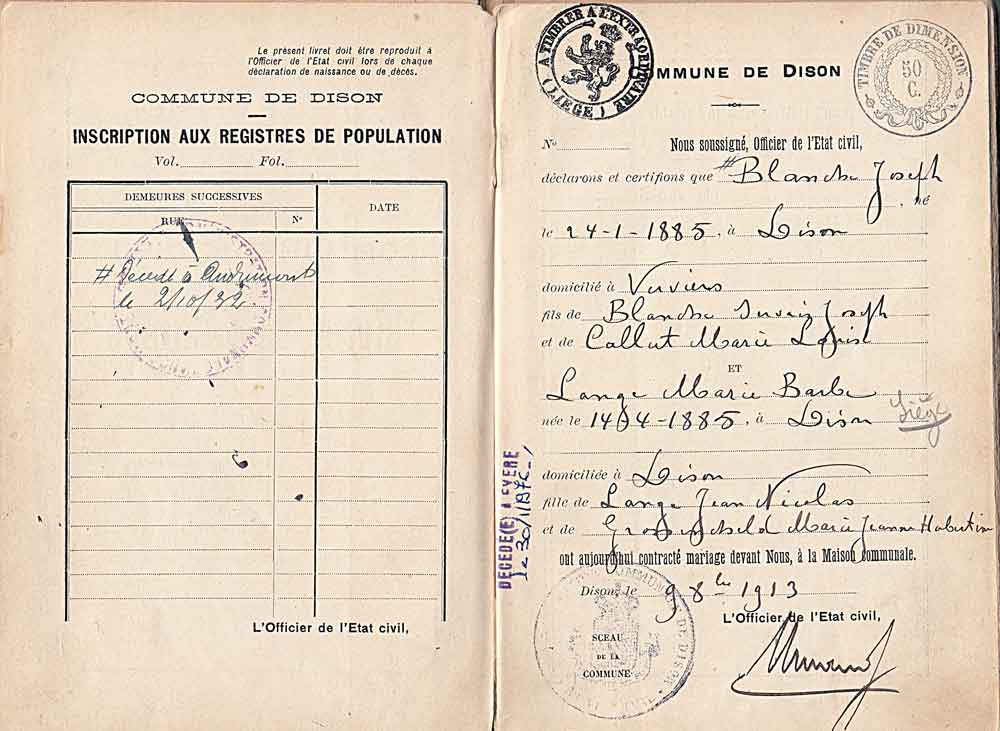 Le présent livret doit être reproduit à
l'Officier de l'Etat civil lors de chaque
déclaration de naissance ou de décès.
COMMUNE DE DISON
INSCRIPTION AUX REGISTRES DE POPULATION
Vol. Fol.
DEMEURES SUCCESSIVES
DATE
RUE
N°
# Décédé à Andrimont
le 2/10/32.
L'Officier de l'Etat civil,
A TIMBRER A L'EXTRAORDINAIRE
(LIEGE)
TIMBRE DE DIMENSION
50
C.
COMMUNE DE DISON
No
Nous soussigné, Officier de l'Etat civil,
déclarons et certifions que # Blanche Joseph
, né
le 24-1-1885, à Dison
domicilié à Verviers
fils de Blanche Joseph
et de Marie
ET
Lange Marie Barbe
née le 1404-1885, à Dison
Liége
domiciliée à Dison
fille de Lange Jean Nicolas
et de Marie Jeanne
ont aujourd'hui contracté mariage devant Nous, à la Maison communale.
Dison, le 9 8bre 1913
L'Officier de l'Etat civil,
SCEAU
DE LA
COMMUNE
DECEDE(E) A EVERE